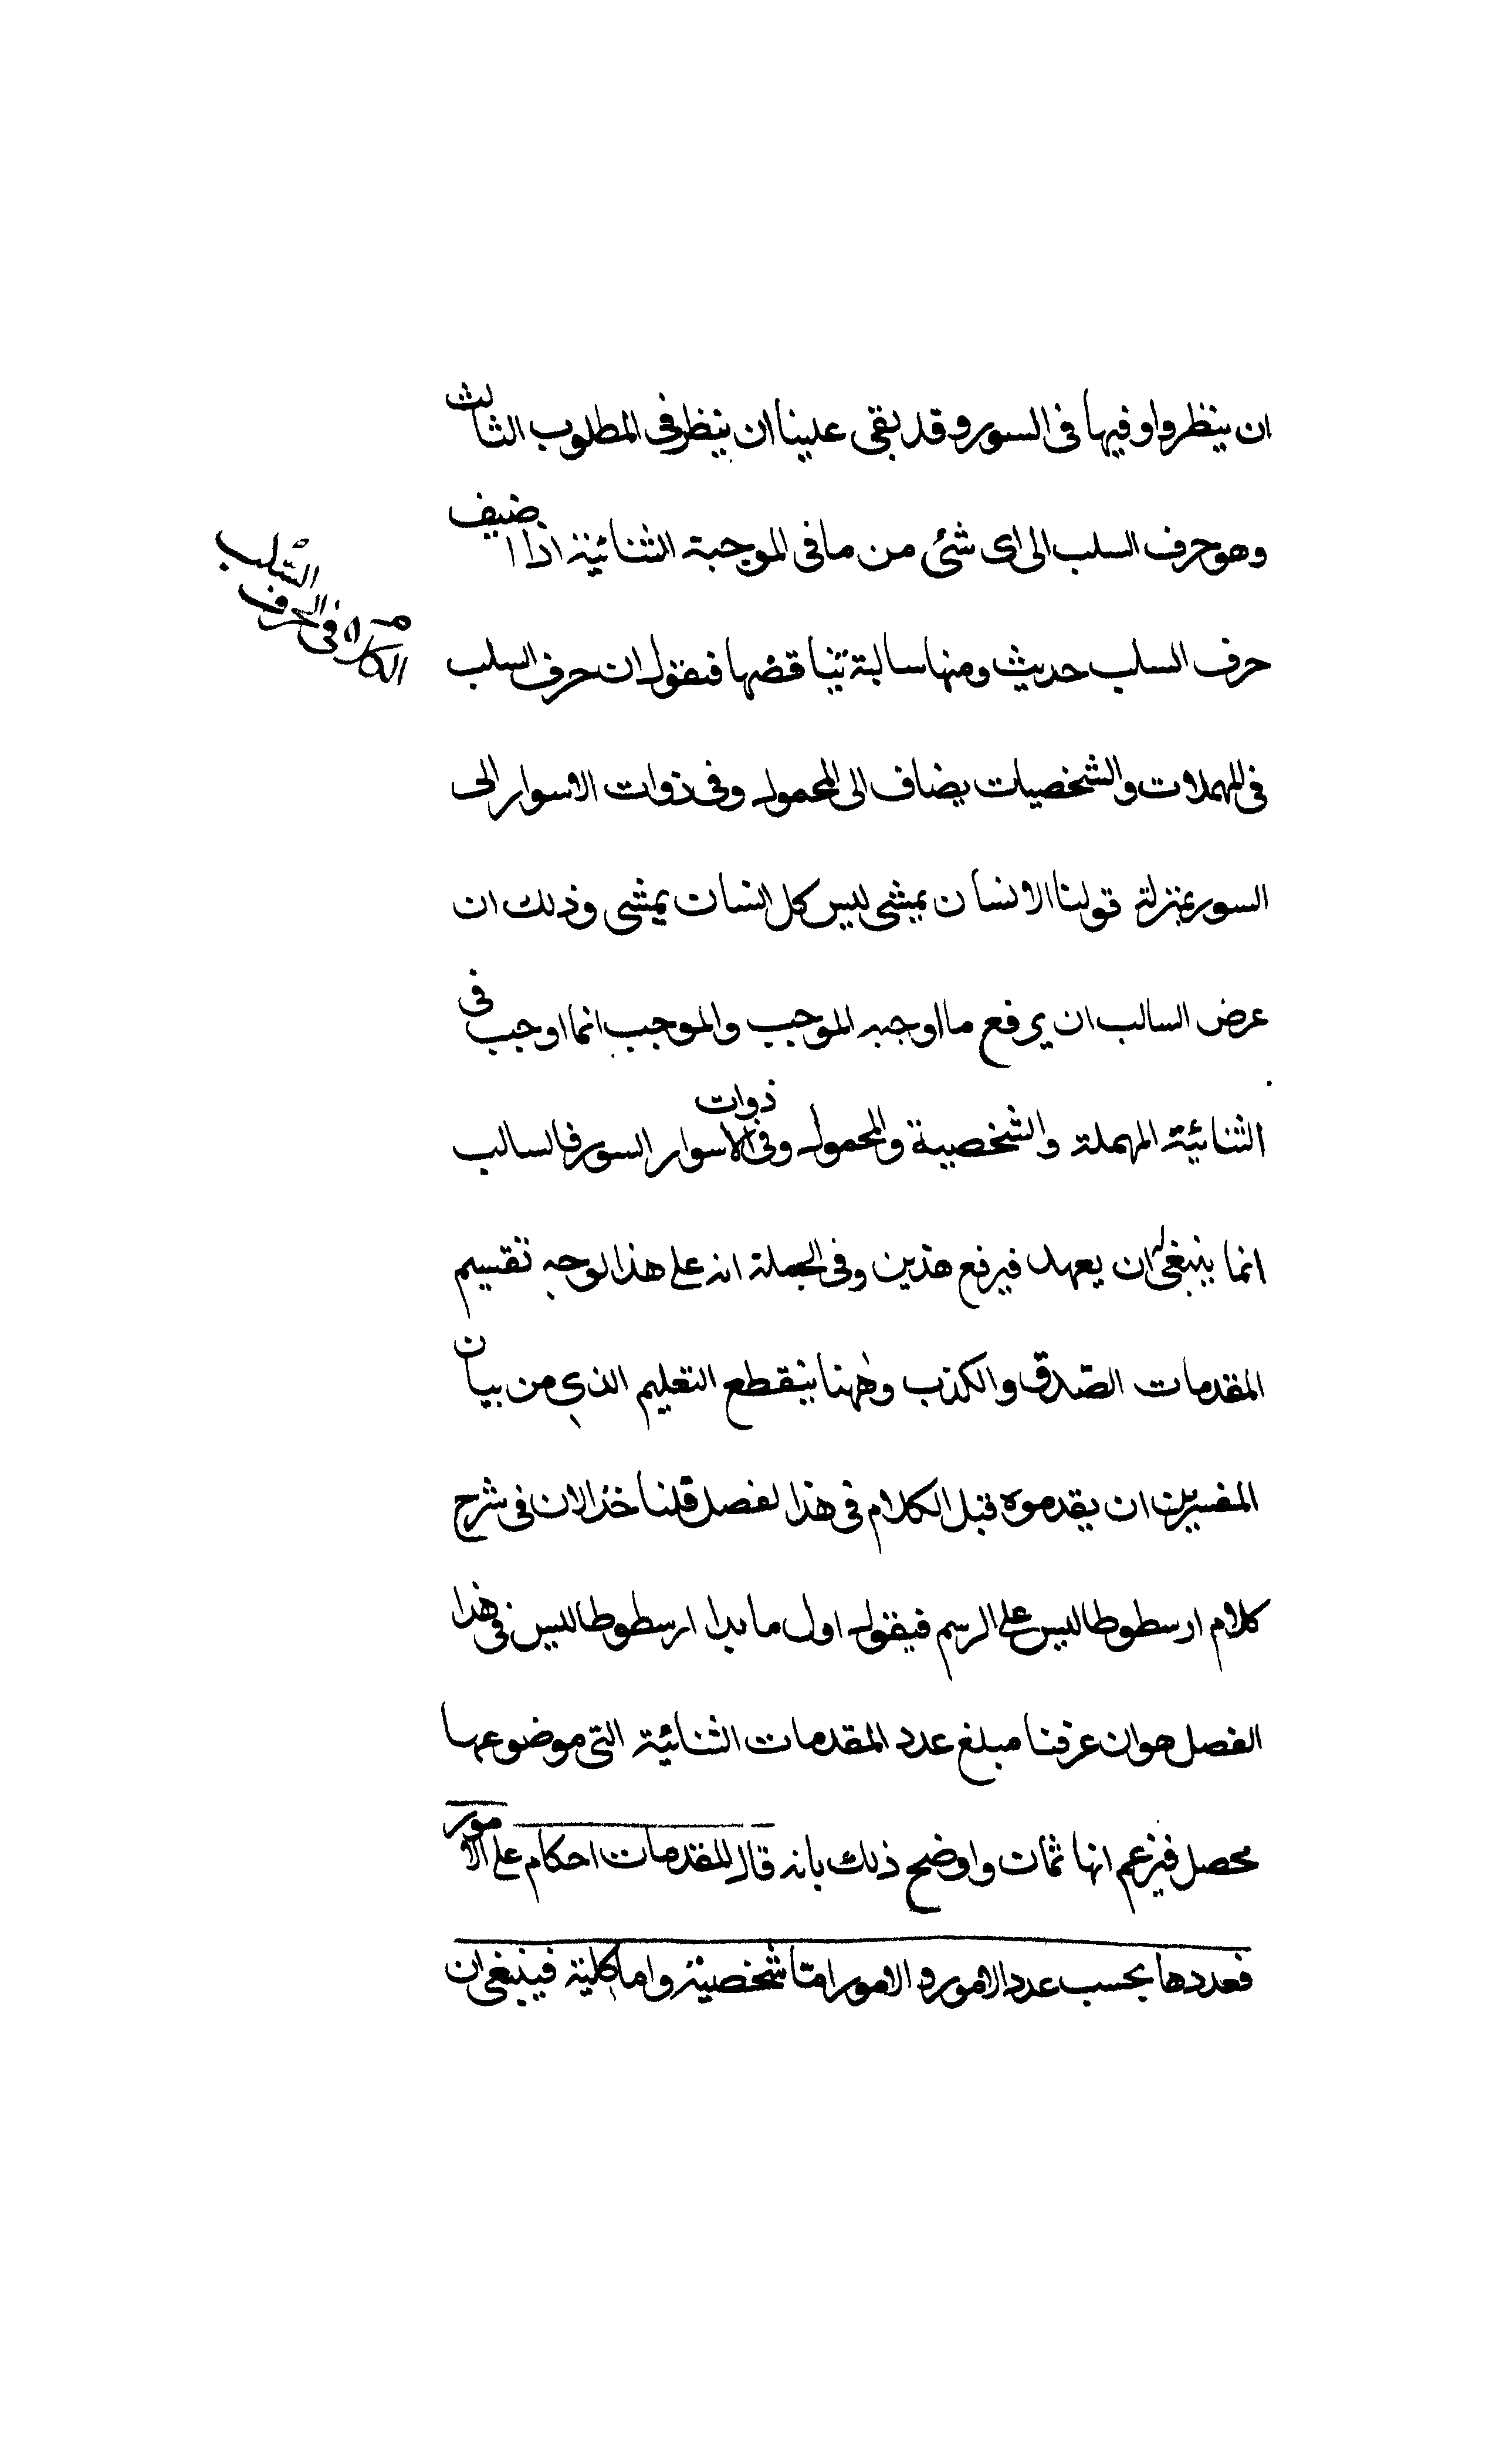 ان ينظروا وفيها فى السور وقد بقى علينا ان ينظر فى المطلوب الثالث
وهو حرف السلب الى اى شئ من ما فى الموجبة الثنائية اذا اضيف
حرف السلب حديث ومنها سالبة تناقضها فنقول ان حرف السلب
فى المهملات والشخصيات يضاف الى المحمول وفى ذوات الاسوار الى
السور بمنزلة قولنا الانسان يمشى ليس كل انسان يمشى وذلك ان
عرض السالب ان يرفع ما اوجبه الموجب والموجب انما اوجب فى
الثنائية المهملة والشخصية والمحمول وفى ذوات الاسوار السور فالسالب
انما ينبغى له ان يعهد فيرفع هذين وفى الجملة انه على هذا لوجه تقسيم
المقدمات الصّدق والكذب وههنا ينقطع التعليم الذي من بيان
المفسرين ان يقدموه قبل الكلام فى هذا لفصل قلنا خذ الان فى شرح
كلام ارسطوطاليس على الرسم فيقول اول ما بدا ارسطوطاليس فى هذا
الفصل هو ان عرفنا مبلغ عدد المقدمات الثنائية التى موضوعها
محصل فيزعم انها ثمان واوضح ذلك بانه قال للمقدمات احكام على الامور
فعددها بحسب عدد الامور و الامور امّا شخصية واما كلية فينبغى ان
الكلام فى الحرف
السّلب